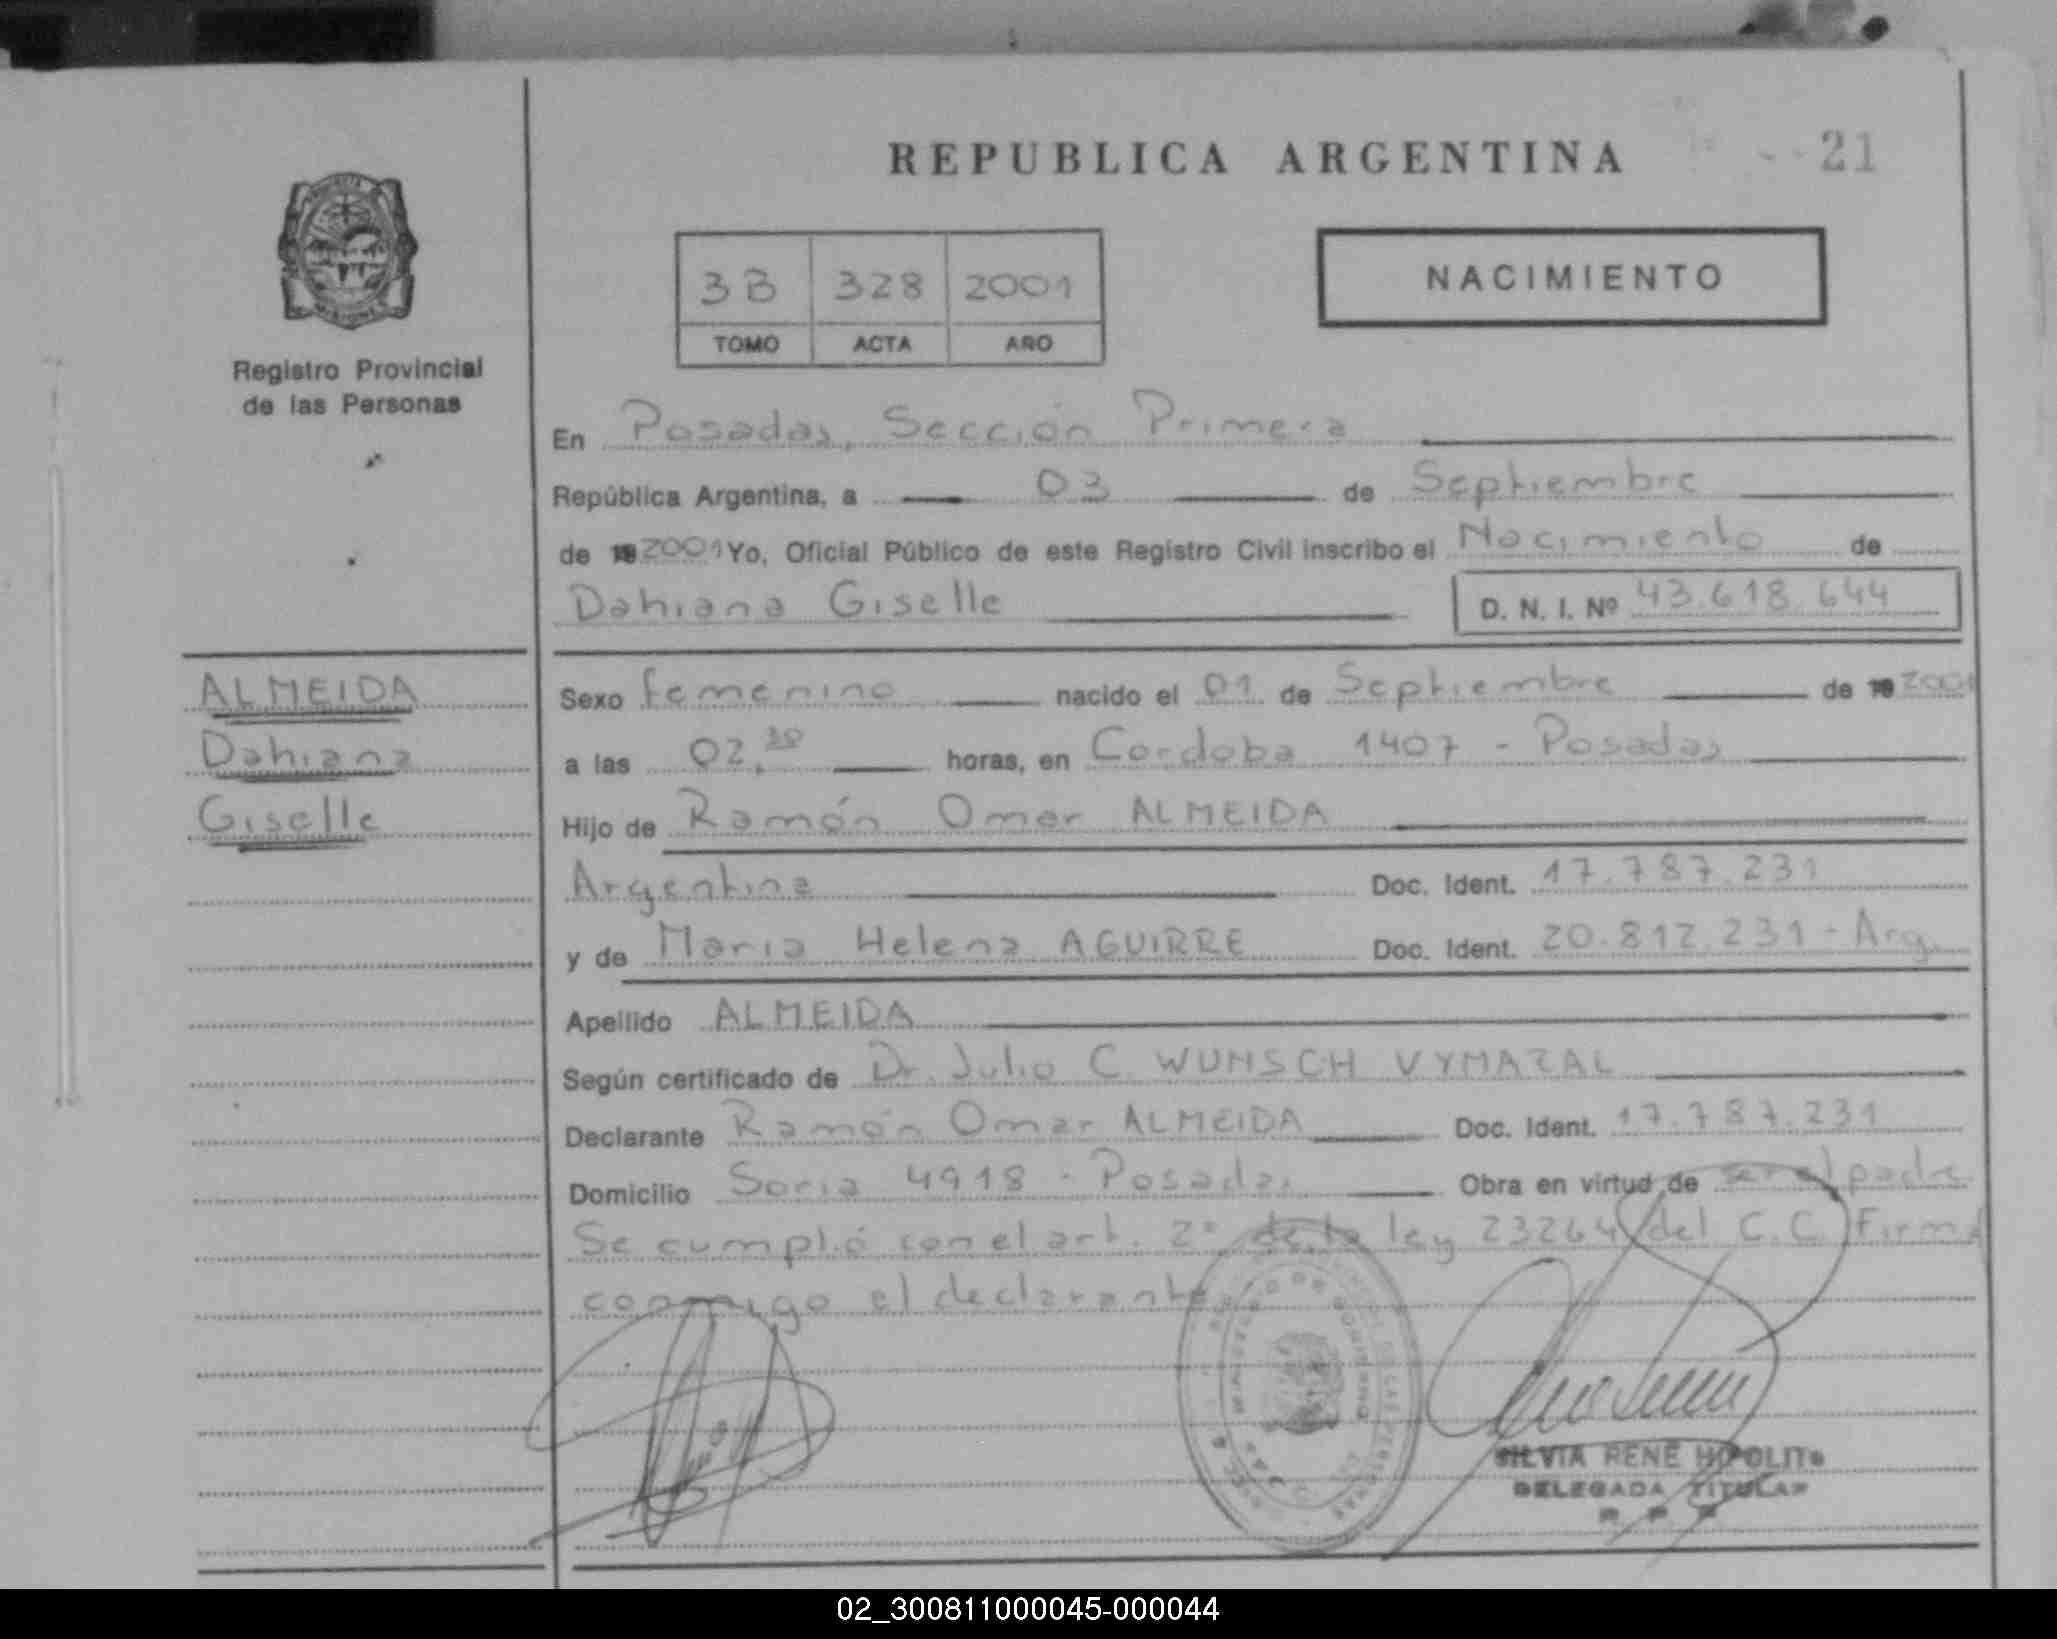 REPUBLICA ARGENTINA
21
3B 328 2001
TOMO ACTA AÑO
NACIMIENTO
Registro Provincial
de las Personas
En Posadas, Sección Primera
República Argentina, a 03 de Septiembre
de 19 2001 Yo, Oficial Público de este Registro Civil inscribo el Nacimiento de
Dahiana Giselle D. N. I. Nº 43.618.644
ALMEIDA
Dahiana
Giselle
Sexo femenino nacido el 01 de Septiembre de 19 2001
a las 02,30 horas, en Cordoba 1407 - Posadas
Hijo de Ramón Omar ALMEIDA
Argentina Doc. Ident. 17.787.231
y de Maria Helena AGUIRRE Doc. Ident. 20.812.231 - Arg.
Apellido ALMEIDA
Según certificado de Dr. Julio C. WUNSCH VYMAZAL
Declarante Ramón Omar ALMEIDA Doc. Ident. 17.787.231
Domicilio Soria 4918 - Posadas Obra en virtud de ser el padre
Se cumplió con el art. 2º de la ley 23264 del C. C. Firma
conmigo el declarante
SILVIA RENE HIPOLITO
DELEGADA TITULAR
R P P
02_300811000045-000044